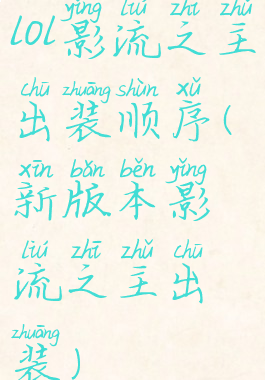 yǐng liú zhī zhǔ
lol影流之主
chū zhuāng shùn xù
出装顺序(
xīn bǎn běn yǐng
新版本影
liú zhī zhǔ chū
流之主出
zhuāng
装)